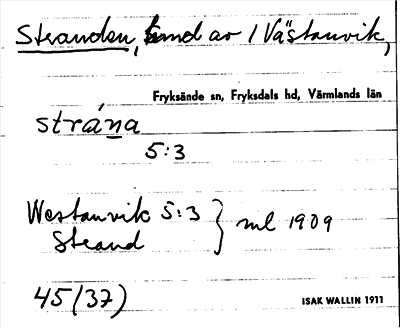 Stranden, hmd av 1 Västanvik,
Fryksände sn, Fryksdals hd, Värmlands län
strána
5:3
Westanvik 5:3 } ml 1909
Strand
45(37)
ISAK WALLIN 1911